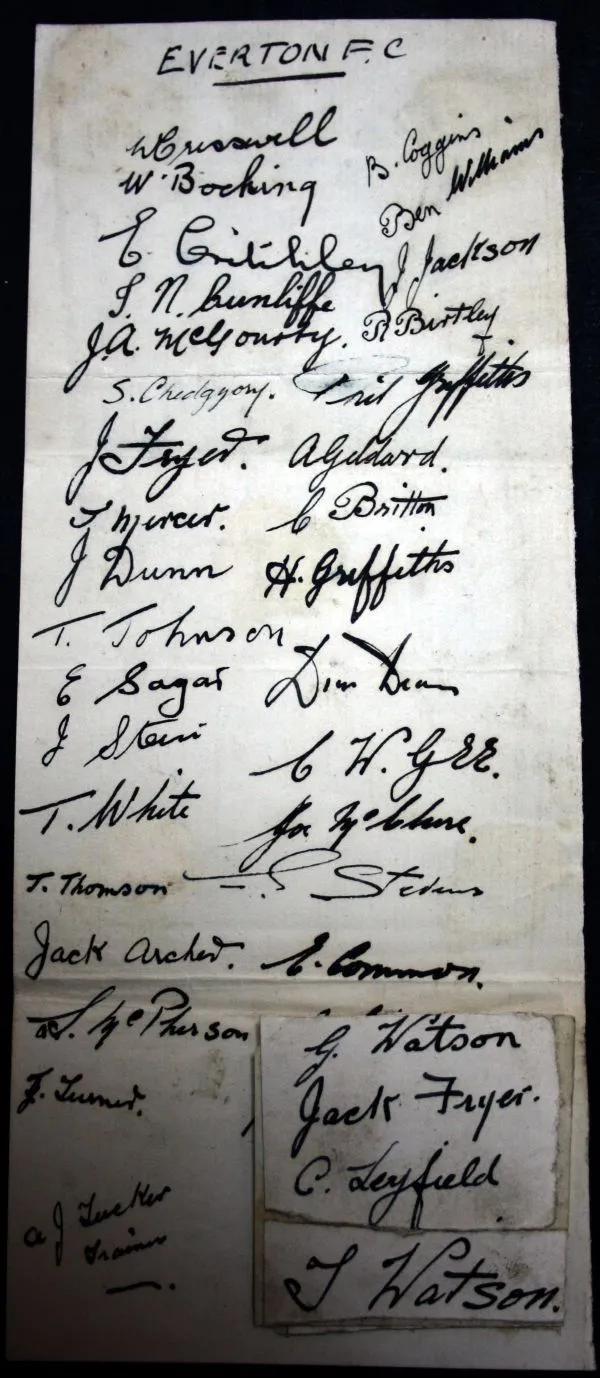 EVERTON F.C
W Cresswell
W. Bocking
E. Critchley
J. N. Cunliffe
J. A. McGourty.
S. Chedgzoy.
J Fryer.
J Mercer.
J Dunn
T. Johnson
E Sagar
J Stein
T. White
T. Thomson
Jack Archer.
McPherson
F. Turner.
A J Tucker
Trainer
B. Coggins
Ben Williams
J Jackson
R Birtley
Phil Griffiths
A Geldard.
C Britton
H. Griffiths
Dean
C W. GEE.
Joe McClure.
Stevens
E. Common.
G. Watson
Jack Fryer.
C. Leyfield
T Watson.